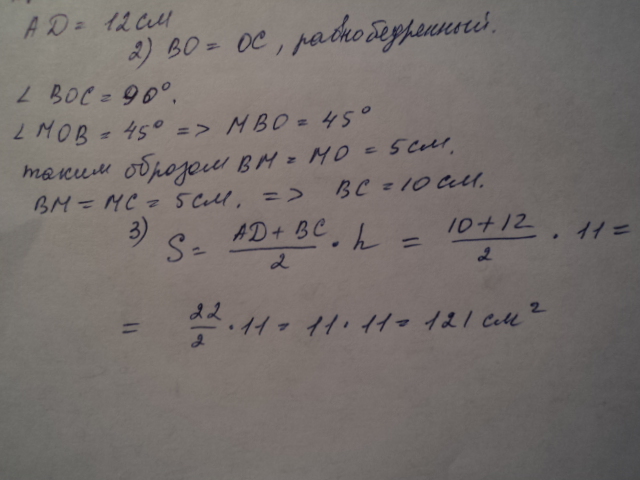 AD = 12 см
2) BO = OC, равнобедренный.
∠ BOC = 90°.
∠ MOB = 45° => MBO = 45°
таким образом BM = MO = 5 см.
BM = MC = 5 см. => BC = 10 см.
3) S = (AD + BC)/2 · h = (10 + 12)/2 · 11 =
= 22/2 · 11 = 11 · 11 = 121 см²